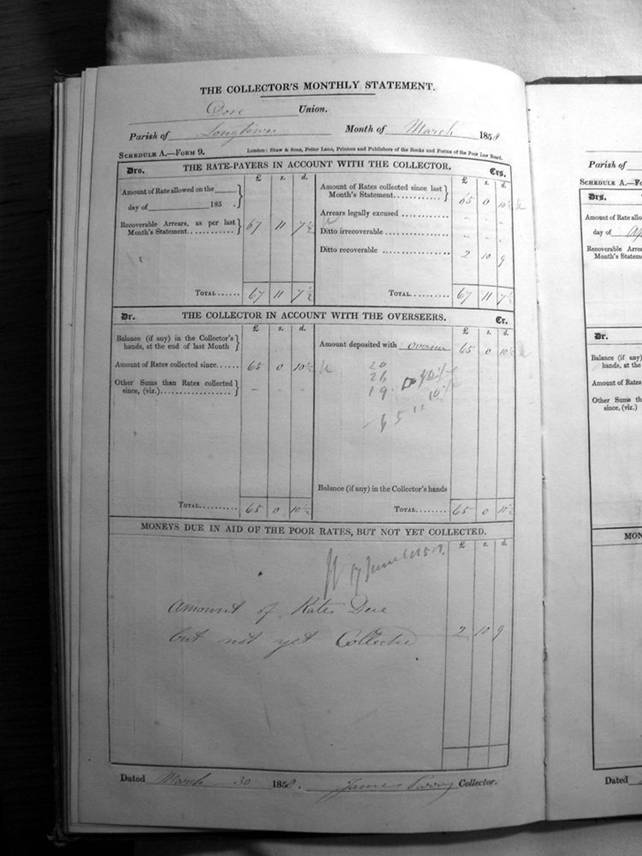 THE COLLECTOR'S MONTHLY STATEMENT.
Dore Union.
Parish of Longtown Month of March 1858
SCHEDULE A.—FORM 9. London: Shaw & Sons, Fetter Lane, Printers and Publishers of the Books and Forms of the Poor Law Board.
Drs. THE RATE-PAYERS IN ACCOUNT WITH THE COLLECTOR. Crs.
£ s. d. £ s. d.
Amount of Rate allowed on the
day of 185 .
Recoverable Arrears, as per last
Month's Statement 67 11 7½
Amount of Rates collected since last
Month's Statement 65 0 10½
Arrears legally excused
Ditto irrecoverable
Ditto recoverable 2 10 9
TOTAL 67 11 7½ TOTAL 67 11 7½
Dr. THE COLLECTOR IN ACCOUNT WITH THE OVERSEERS. Cr.
£ s. d. £ s. d.
Balance (if any) in the Collector's
hands, at the end of last Month
Amount of Rates collected since 65 0 10½
Other Sums than Rates collected
since, (viz.)
Amount deposited with Overseer 65 0 10½
20
26
19
65
Balance (if any) in the Collector's hands
TOTAL 65 0 10½ TOTAL 65 0 10½
MONEYS DUE IN AID OF THE POOR RATES, BUT NOT YET COLLECTED.
£ s. d.
Amount of Rates Due
but not yet Collected 2 10 9
Dated March 30 1858. James Parry Collector.
Parish of
SCHEDULE A.—F
Drs.
Amount of Rate allow
day of Ap
Recoverable Arrears
Month's Statem
Dr.
Balance (if any)
hands, at the e
Amount of Rates
Other Sums
since, (viz.)
MON
Dated